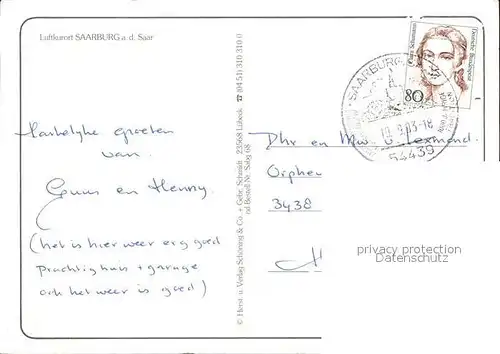 Luftkurort SAARBURG a. d. Saar
Hartelijke groeten
van.
Guus en Henny.
(het is hier weer erg goed
prachtig huis + garage
ook het weer is goed)
© Herst. u. Verlag Schöning & Co + Gebr. Schmidt 23568 Lübeck ☎ (04 51) 310 310 0
nd Bestell Nr. Salg 68
Deutsche Bundespost
Clara Schumann
80
SAARBURG
-18
54439
Dhr en Mw
Orpheu
3438
privacy protection
Datenschutz